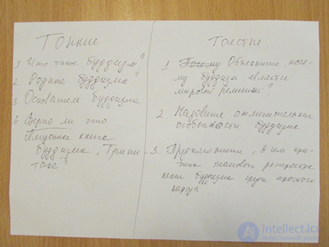 Тонкие
1. Что такое буддизм?
2. Родина буддизма?
3. Основатель буддизма
4. Верно ли что
книга
буддизма "Трипи-
така"
Толстые
1. Объясните, поче-
му буддизм является
мировой религией?
2. Назовите отличительные
особенности буддизма
3. Предположите, в чем при-
чина распростра-
нения буддизма среди
народов
intellect.icu